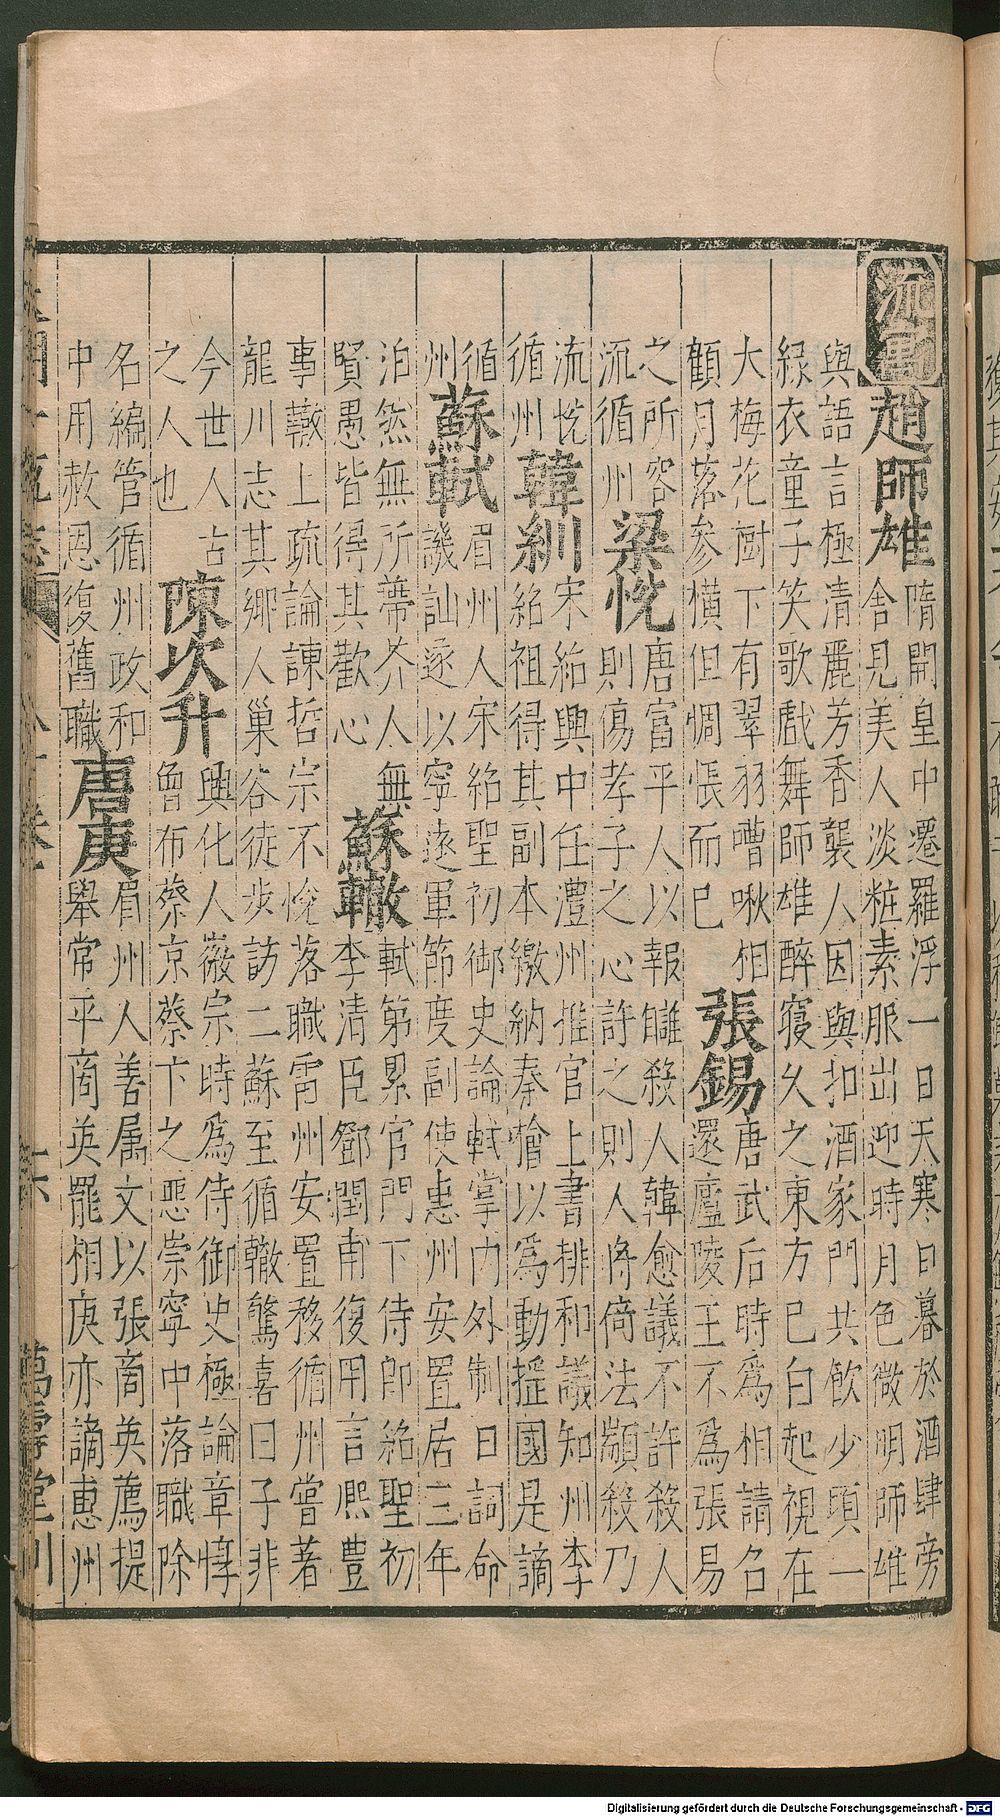 流寓
趙師雄
隋開皇中遷羅浮一日天寒日暮於酒肆旁
舍見美人淡粧素服出迎時月色微明師雄
與語言極清麗芳香襲人因與扣酒家門共飲少頃一
綠衣童子笑歌戲舞師雄醉寢久之東方已白起視在
大梅花樹下有翠羽嘈啾相
顧月落參橫但惆悵而已
張錫
唐武后時為相請召
還廬陵王不為張易
之所容
流循州
梁悅
唐富平人以報讎殺人韓愈議不許殺人
則傷孝子之心許之則人將倚法顓殺乃
流悅
循州
韓紃
宋紹興中任澧州推官上書排和議知州李
紿祖得其副本繳納秦檜以為動搖國是謫
循
州
蘇軾
眉州人宋紹聖初御史論軾掌內外制日詞命
譏訕遂以寧遠軍節度副使惠州安置居三年
泊然無所蔕芥人無
賢愚皆得其歡心
蘇轍
軾第累官門下侍郎紹聖初
李清臣鄧潤甫復用言熙豐
事轍上疏論諫哲宗不悅落職雷州安置移循州嘗著
龍川志其鄉人巢谷徒步訪二蘇至循轍驚喜曰子非
今世人古
之人也
陳次升
興化人徽宗時為侍御史極論章惇
曾布蔡京蔡卞之惡崇寧中落職除
名編管循州政和
中用赦恩復舊職
唐庚
眉州人善属文以張商英薦提
舉常平商英罷相庚亦謫惠州
萬壽堂刊
Digitalisierung gefördert durch die Deutsche Forschungsgemeinschaft - DFG